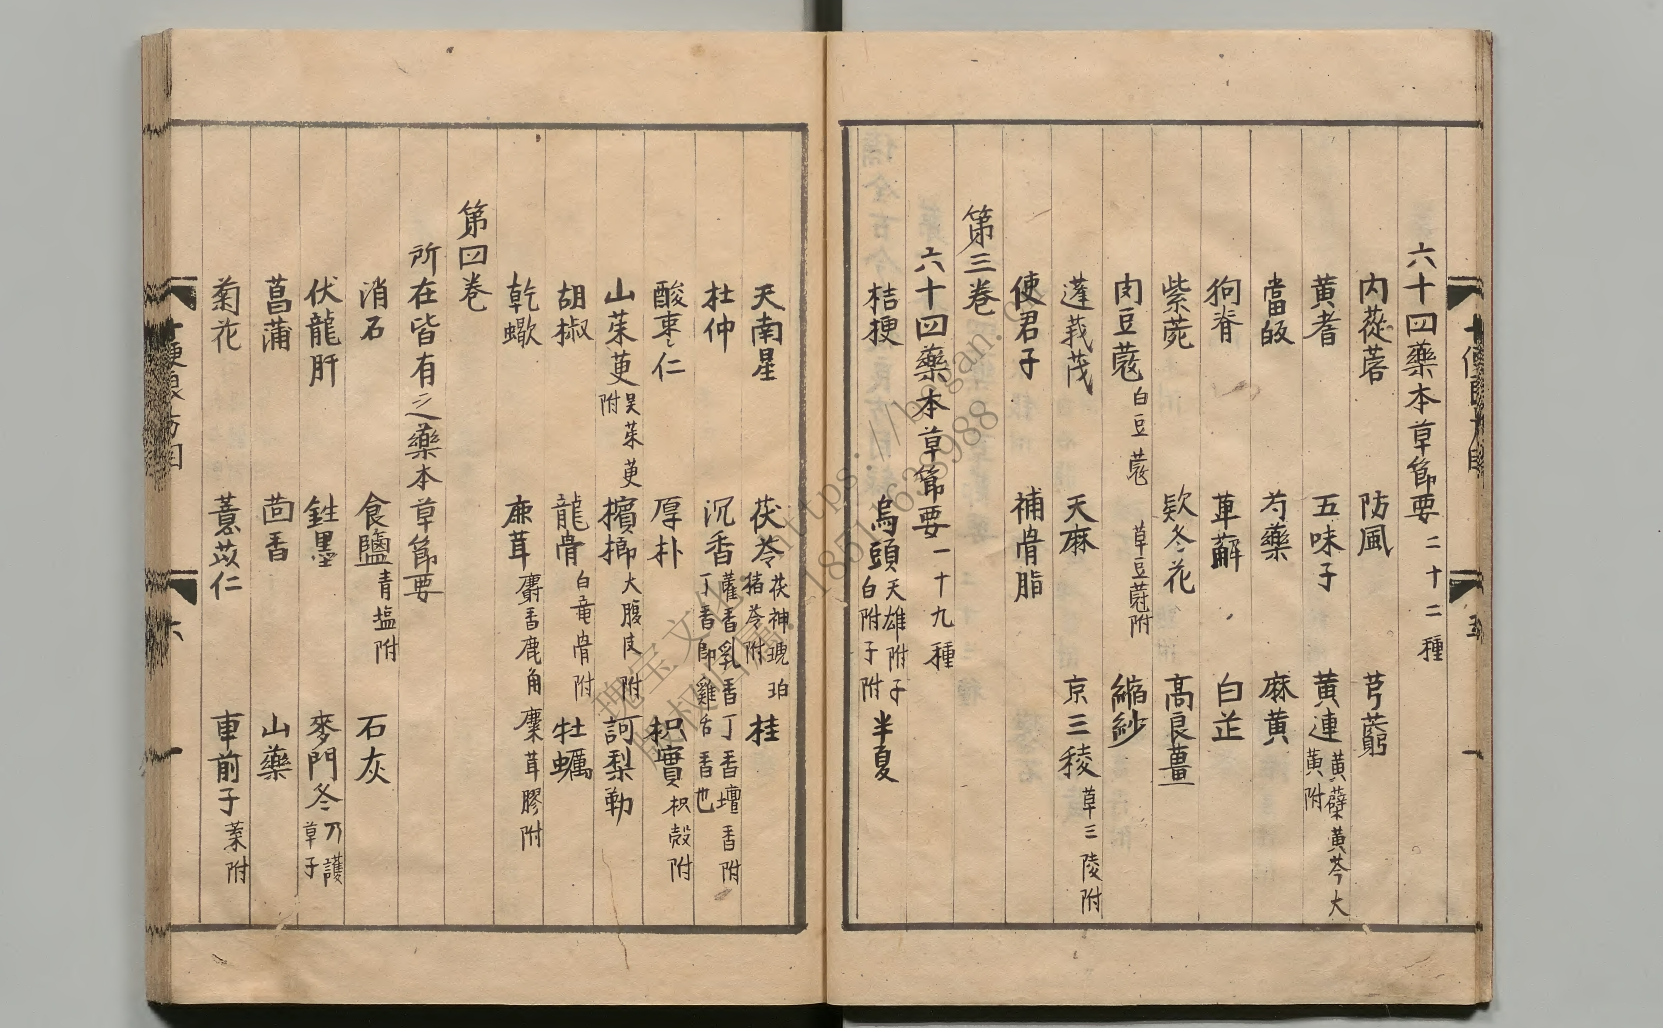 六十四藥本草節要二十二種
肉蓯蓉 防風 芎藭
黃耆 五味子 黃連黃蘗黃芩大黃附
當皈 芍藥 麻黃
狗脊 萆薢 白芷
紫菀 款冬花 高良薑
肉豆蔻白豆蔻草豆蔻附 縮紗
蓬莪茂 天麻 京三稜草三陵附
使君子 補骨脂
第三卷
六十四藥本草節要一十九種
桔梗 烏頭天雄附子白附子附 半夏
天南星 茯苓茯神琥珀猪苓附 桂
杜仲 沉香藿香乳香丁香壇香附丁香即雞舌香也
酸棗仁 厚朴 枳實枳殼附
山茱萸吳茱萸附 檳榔大腹皮附 訶梨勒
胡椒 龍骨白竜骨附 牡蠣
乾蠍 鹿茸麝香鹿角麋茸膠附
第四卷
所在皆有之藥本草節要
消石 食鹽青塩附 石灰
伏龍肝 鉎墨 麥門冬乃護草子
菖蒲 茴香 山藥
菊花 薏苡仁 車前子葉附
六
https://bggan.
18511633988